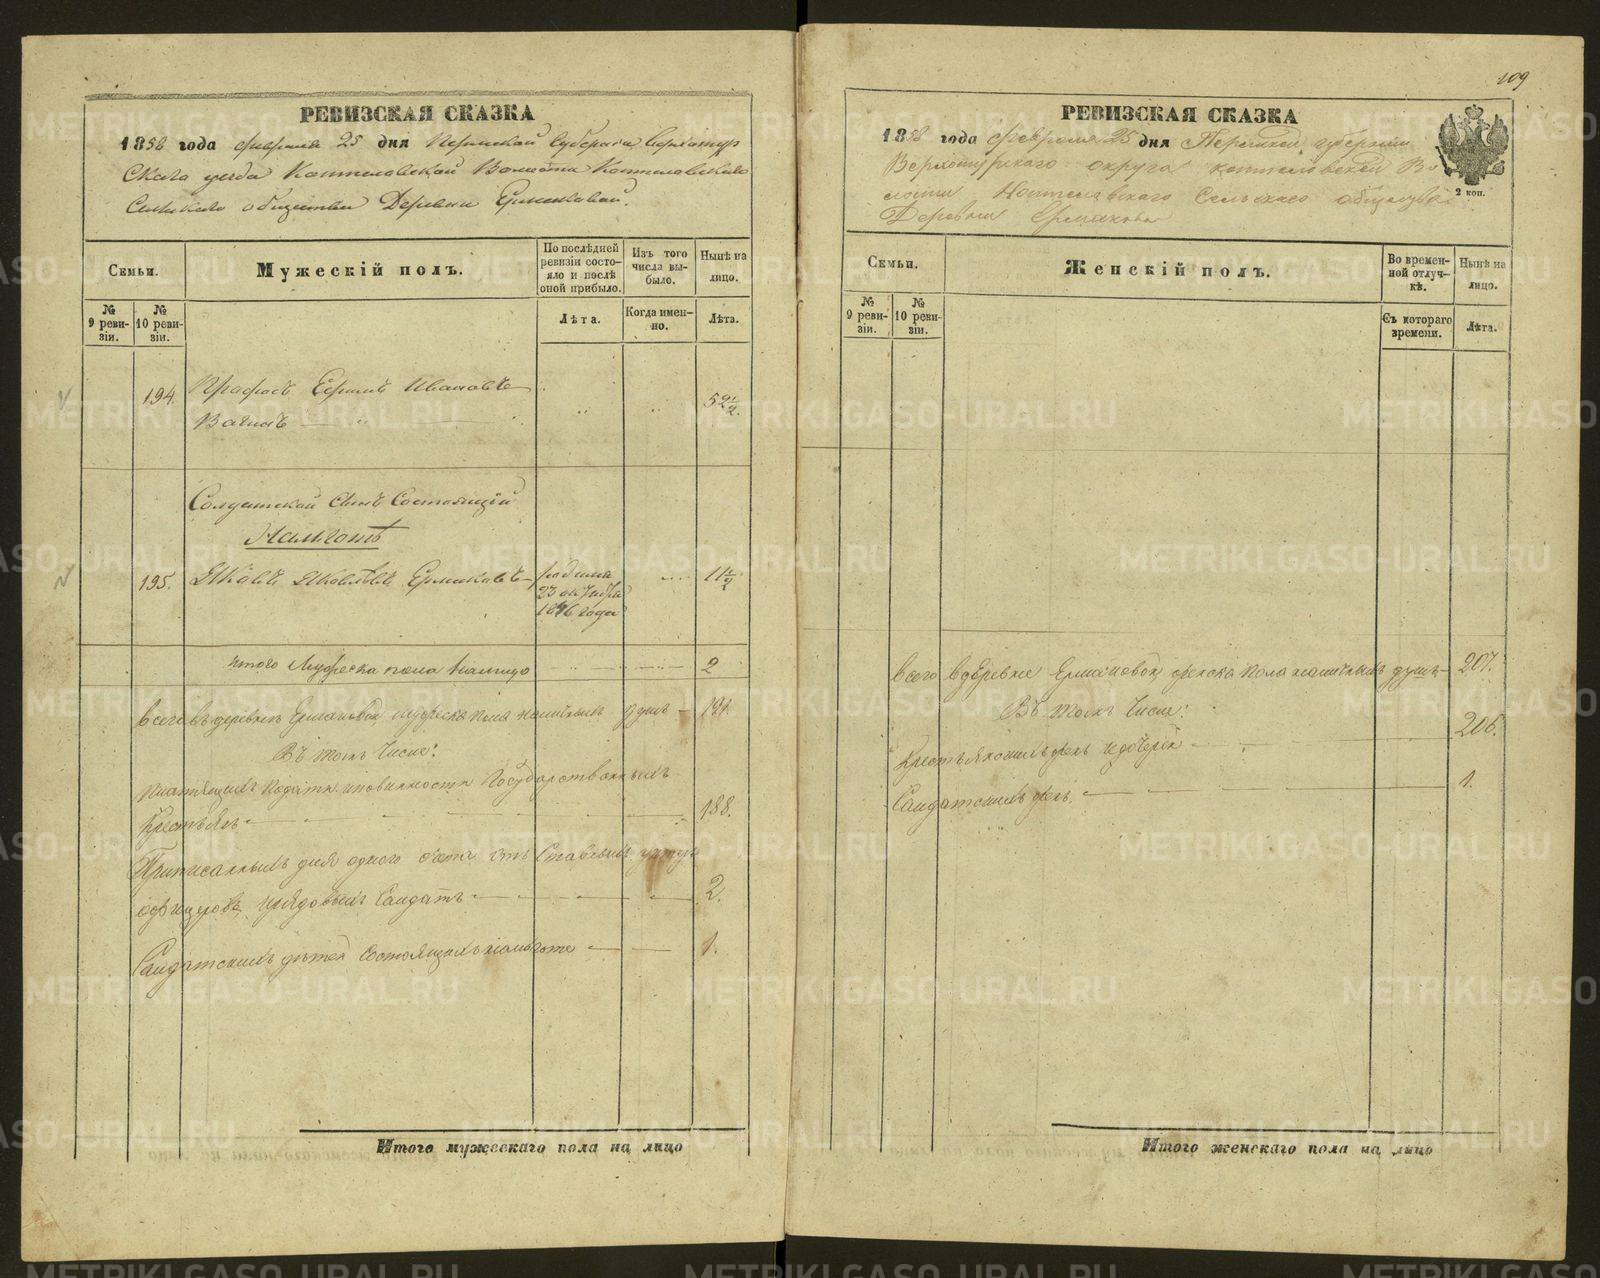 РЕВИЗСКАЯ СКАЗКА
1858 года февраля 25 дня Пермской Губернии Верхотур
скаго уезда Коптеловской Волости Коптеловскаго
Сельскаго общества Деревни Ермаковой.
Семьи.
Мужескій полъ.
По послѣдней ревизіи состояло и послѣ оной прибыло.
Изъ того числа выбыло.
Нынѣ на лицо.
№ 9 ревизіи.
№ 10 ревизіи.
Лѣта.
Когда именно.
Лѣта.
194.
Ефимъ Ивановъ
52½.
Солдатской Сынъ Состоящій
На льготѣ
195.
Яковлевъ Ермаковъ
родился
23 октября
1846 года
11½
итого Мужеска пола налицо
2
Всего въ деревне Ермаковой мужеска пола наличныхъ душъ
191.
Въ томъ Числе:
Платящихъ подати и повинности Государственныхъ
Крестьянъ
188.
Приписанныхъ для одного счета
офицеровъ рядовыхъ Солдатъ
2.
Солдатскихъ детей Состоящихъ на льготе
1.
Итого мужескаго пола на лицо
109
РЕВИЗСКАЯ СКАЗКА
1858 года февраля 25 дня Пермской губернии
Верхотурскаго округа Коптеловской Во
лости Коптеловскаго Сельскаго общества
Деревни Ермаковой
2 коп.
Семьи.
Женскій полъ.
Во временной отлучкѣ.
Нынѣ на лицо.
№ 9 ревизіи.
№ 10 ревизіи.
Съ котораго времени.
Лѣта.
Всего в деревне Ермаковой женска пола наличныхъ душъ
207.
Въ томъ Числе:
206.
Крестьянскихъ женъ и дочерей
1.
Солдатскихъ женъ
Итого женскаго пола на лицо
METRIKI.GASO-URAL.RU